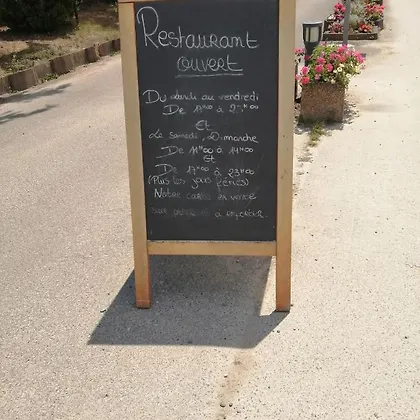 Restaurant
ouvert
Du Lundi au vendredi
De 17h00 à 23h00
Et
Le Samedi, Dimanche
De 11h00 à 14h00
Et
De 17h00 à 23h00
(Plus les jours fériés)
Notre carte en
a emporter